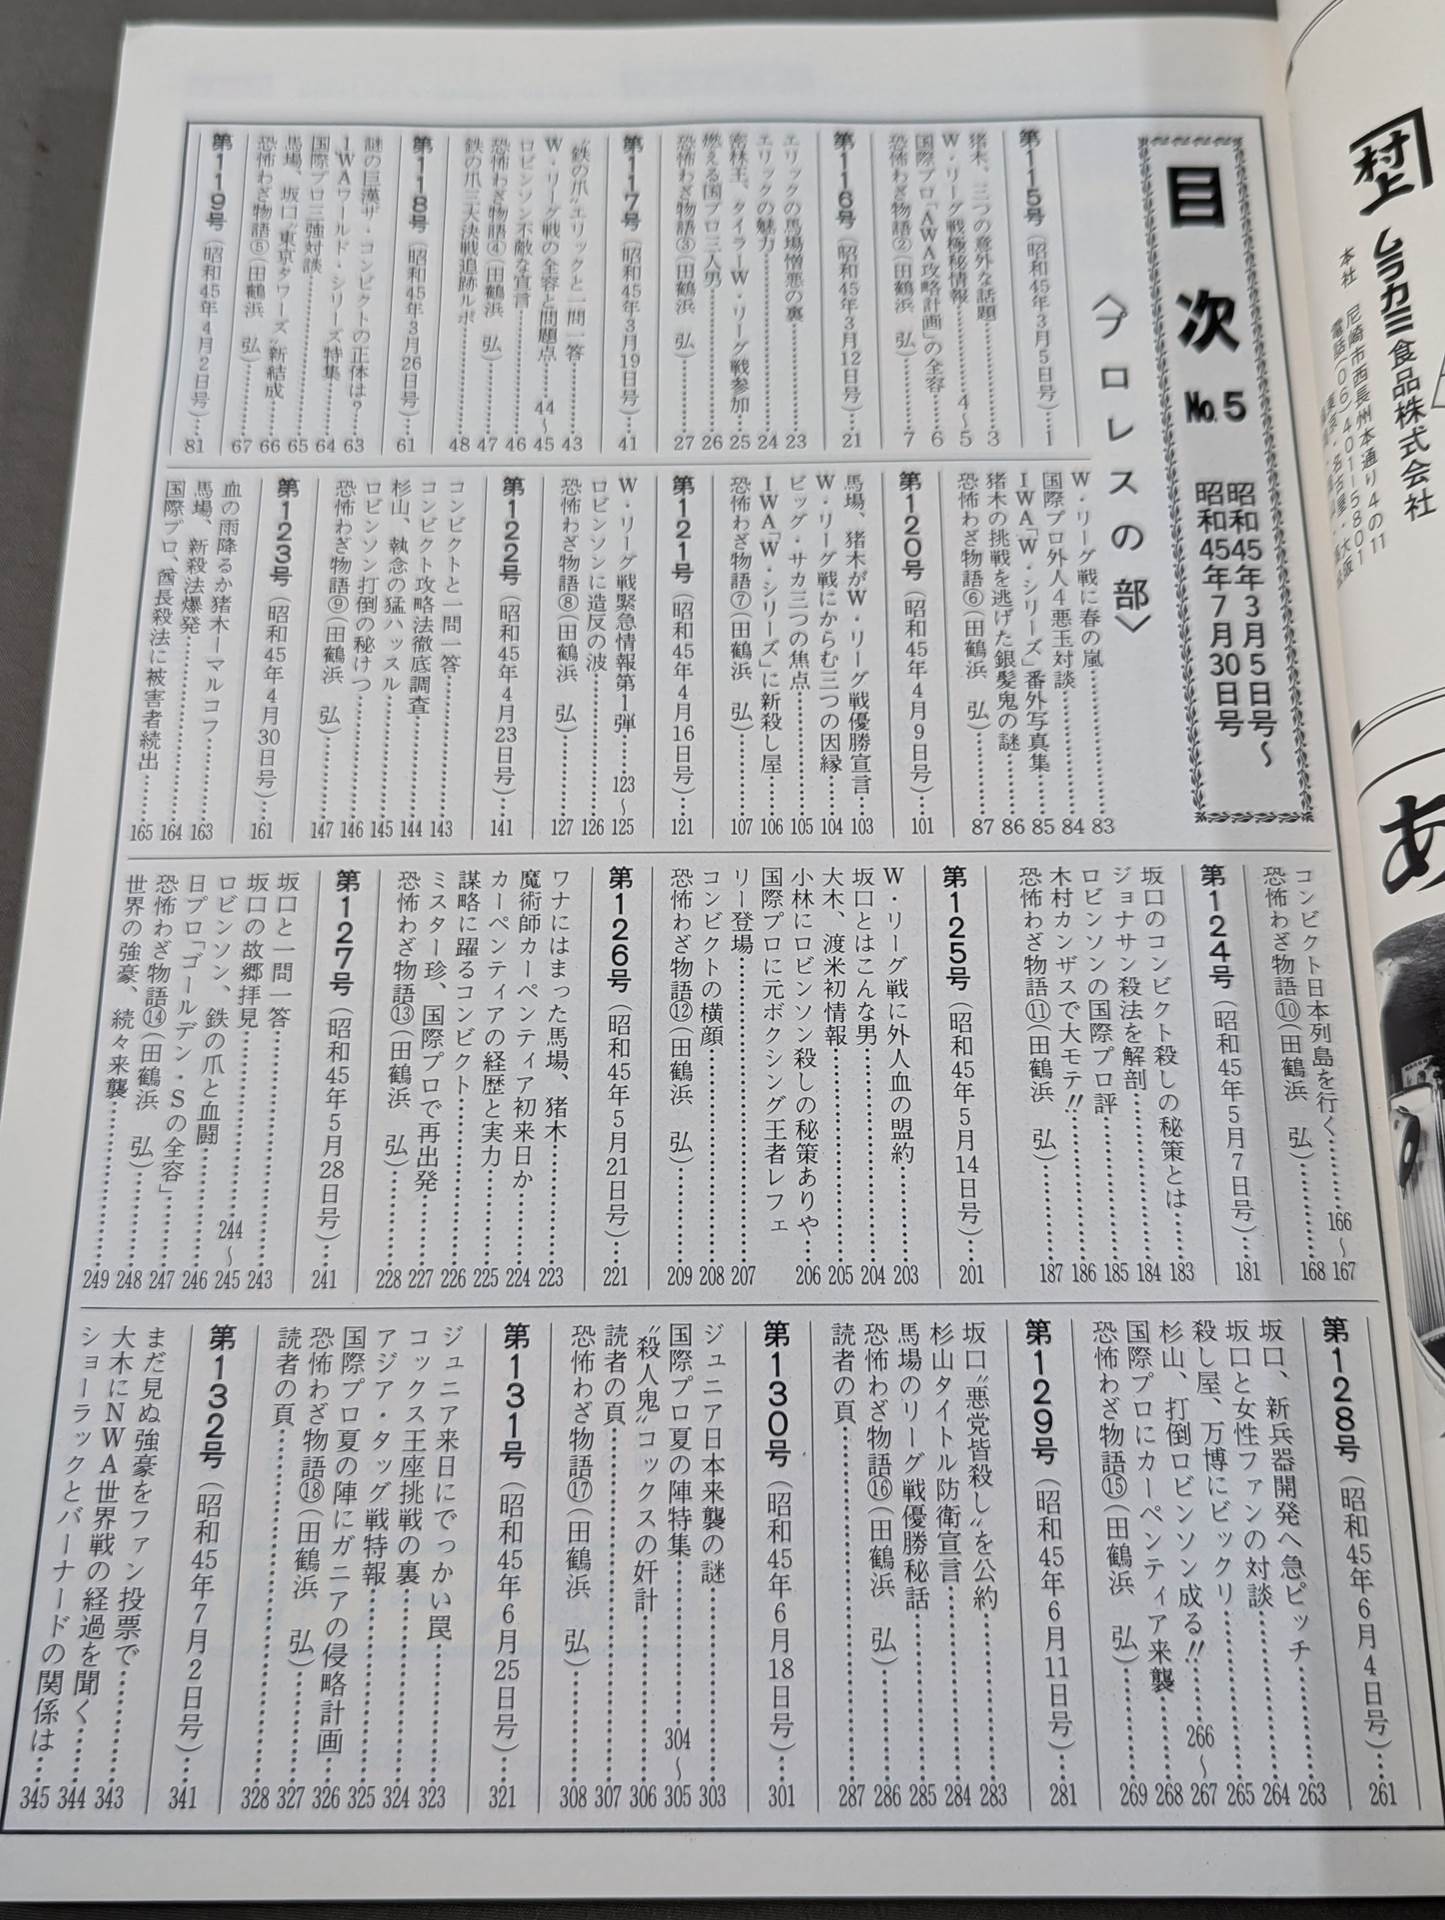 目次 No.5
昭和45年3月5日号〜
昭和45年7月30日号
〈プロレスの部〉
第115号（昭和45年3月5日号）…1
猪木、三つの意外な話題…3
W・リーグ戦極秘情報…4〜5
国際プロ「AWA攻略計画」の全容…6
恐怖わざ物語②（田鶴浜 弘）…7
第116号（昭和45年3月12日号）…21
エリックの馬場憎悪の裏…23
エリックの魅力…24
密林王、タイラーW・リーグ戦参加…25
燃える国プロ三人男…26
恐怖わざ物語③（田鶴浜 弘）…27
第117号（昭和45年3月19日号）…41
“鉄の爪”エリックと一問一答…43
W・リーグ戦の全容と問題点…44〜45
ロビンソン不敵な宣言…46
恐怖わざ物語④（田鶴浜 弘）…47
鉄の爪三大決戦追跡ルポ…48
第118号（昭和45年3月26日号）…61
謎の巨漢ザ・コンビクトの正体は？…63
IWAワールド・シリーズ特集…64
国際プロ三強対談…65
馬場、坂口“東京タワーズ”新結成…66
恐怖わざ物語⑤（田鶴浜 弘）…67
第119号（昭和45年4月2日号）…81
W・リーグ戦に春の嵐…83
国際プロ外人4悪玉対談…84
IWA「W・シリーズ」番外写真集…85
猪木の挑戦を逃げた銀髪鬼の謎…86
恐怖わざ物語⑥（田鶴浜 弘）…87
第120号（昭和45年4月9日号）…101
馬場、猪木がW・リーグ戦優勝宣言…103
W・リーグ戦にからむ三つの因縁…104
ビッグ・サカ三つの焦点…105
IWA「W・シリーズ」に新殺し屋…106
恐怖わざ物語⑦（田鶴浜 弘）…107
第121号（昭和45年4月16日号）…121
W・リーグ戦緊急情報第1弾…123〜125
ロビンソンに造反の波…126
恐怖わざ物語⑧（田鶴浜 弘）…127
第122号（昭和45年4月23日号）…141
コンビクトと一問一答…143
コンビクト攻略法徹底調査…144
杉山、執念の猛ハッスル…145
ロビンソン打倒の秘けつ…146
恐怖わざ物語⑨（田鶴浜 弘）…147
第123号（昭和45年4月30日号）…161
血の雨降るか猪木ーマルコフ…163
馬場、新殺法爆発…164
国際プロ、酋長殺法に被害者続出…165
コンビクト日本列島を行く…166〜167
恐怖わざ物語⑩（田鶴浜 弘）…168
第124号（昭和45年5月7日号）…181
坂口のコンビクト殺しの秘策とは…183
ジョナサン殺法を解剖…184
ロビンソンの国際プロ評…185
木村カンザスで大モテ!!…186
恐怖わざ物語⑪（田鶴浜 弘）…187
第125号（昭和45年5月14日号）…201
W・リーグ戦に外人血の盟約…203
坂口とはこんな男…204
大木、渡米初情報…205
小林にロビンソン殺しの秘策ありや…206
国際プロに元ボクシング王者レフェ
リー登場…207
コンビクトの横顔…208
恐怖わざ物語⑫（田鶴浜 弘）…209
第126号（昭和45年5月21日号）…221
ワナにはまった馬場、猪木…223
魔術師カーペンティア初来日か…224
カーペンティアの経歴と実力…225
謀略に躍るコンビクト…226
ミスター珍、国際プロで再出発…227
恐怖わざ物語⑬（田鶴浜 弘）…228
第127号（昭和45年5月28日号）…241
坂口と一問一答…243
坂口の故郷拝見…244〜245
ロビンソン、鉄の爪と血闘…246
日プロ「ゴールデン・Sの全容」…247
恐怖わざ物語⑭（田鶴浜 弘）…248
世界の強豪、続々来襲…249
第128号（昭和45年6月4日号）…261
坂口、新兵器開発へ急ピッチ…263
坂口と女性ファンの対談…264
殺し屋、万博にビックリ…265
杉山、打倒ロビンソン成る!!…266〜267
国際プロにカーペンティア来襲…268
恐怖わざ物語⑮（田鶴浜 弘）…269
第129号（昭和45年6月11日号）…281
坂口“悪党皆殺し”を公約…283
杉山タイトル防衛宣言…284
馬場のリーグ戦優勝秘話…285
恐怖わざ物語⑯（田鶴浜 弘）…286
読者の頁…287
第130号（昭和45年6月18日号）…301
ジュニア日本来襲の謎…303
国際プロ夏の陣特集…304〜305
“殺人鬼”コックスの奸計…306
読者の頁…307
恐怖わざ物語⑰（田鶴浜 弘）…308
第131号（昭和45年6月25日号）…321
ジュニア来日にでっかい罠…323
コックス王座挑戦の裏…324
アジア・タッグ戦特報…325
国際プロ夏の陣にガニアの侵略計画…326
恐怖わざ物語⑱（田鶴浜 弘）…327
読者の頁…328
第132号（昭和45年7月2日号）…341
まだ見ぬ強豪をファン投票で…343
大木にNWA世界戦の経過を聞く…344
ショーラックとバーナードの関係は…345
村上
ムラカミ食品株式会社
本社 尼崎市西長州本通り4の11
電話06/401-5801
あ